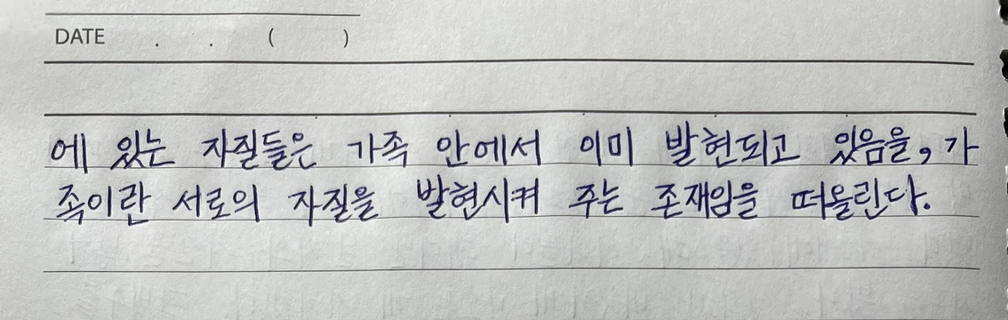 DATE . . ( )
에 있는 자질들은 가족 안에서 이미 발현되고 있음을, 가
족이란 서로의 자질을 발현시켜 주는 존재임을 떠올린다.